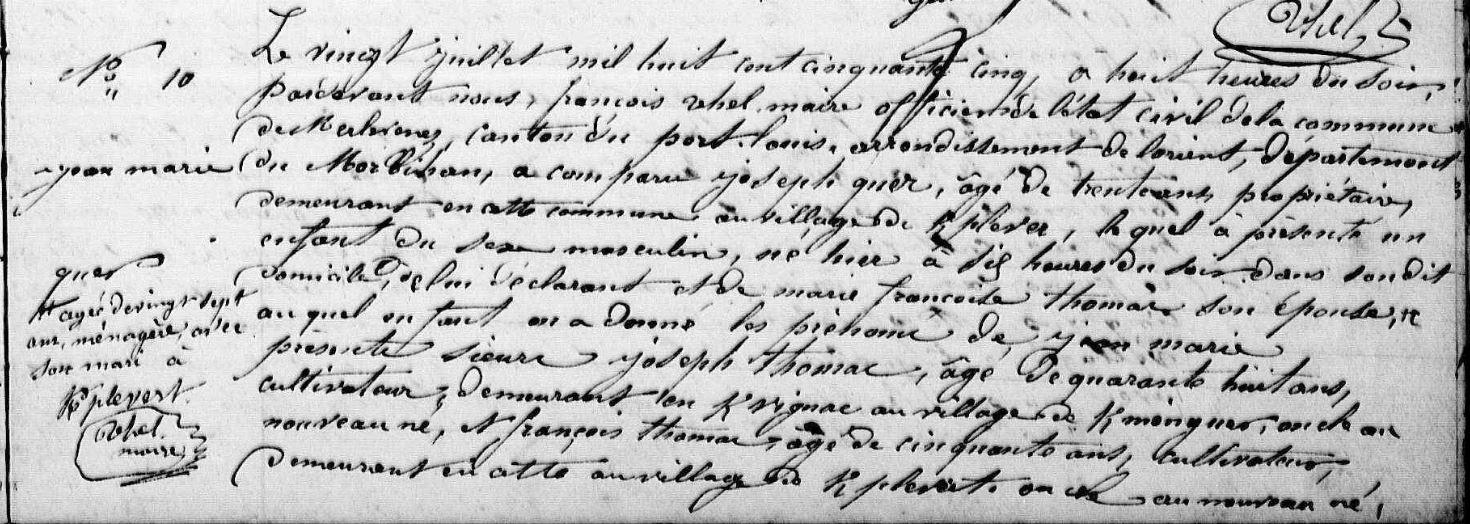 Rhel
No 10
jean marie
quer
# agée de vingt sept
ans, ménagère, avec
son mari à
Kplevert.
Rhel
maire
Le vingt juillet mil huit cent cinquante cinq, a huit heures du soir,
pardevant nous, françois rhel maire officier de l'état civil de la commune
de Kervignac, canton du port-louis, arrondissement de lorient, département
du Morbihan, a comparu joseph quer, âgé de trente ans, propriétaire,
demeurant en cette commune au village de Kplever, le quel à présenté un
enfant du sexe masculin, né hier à six heures du soir dans son dit
domicile, de lui déclarant et de marie françoise thomas son épouse, #
au quel enfant on a donné les prénoms de jean marie
présents sieurs joseph thomas, âgé de quarante huit ans,
cultivateur, demeurant en Kvignac au village de Kminguer, oncle au
nouveau né, et françois thomas, âgé de cinquante ans, cultivateur,
demeurant en cette au village de Kplevert oncle au nouveau né,